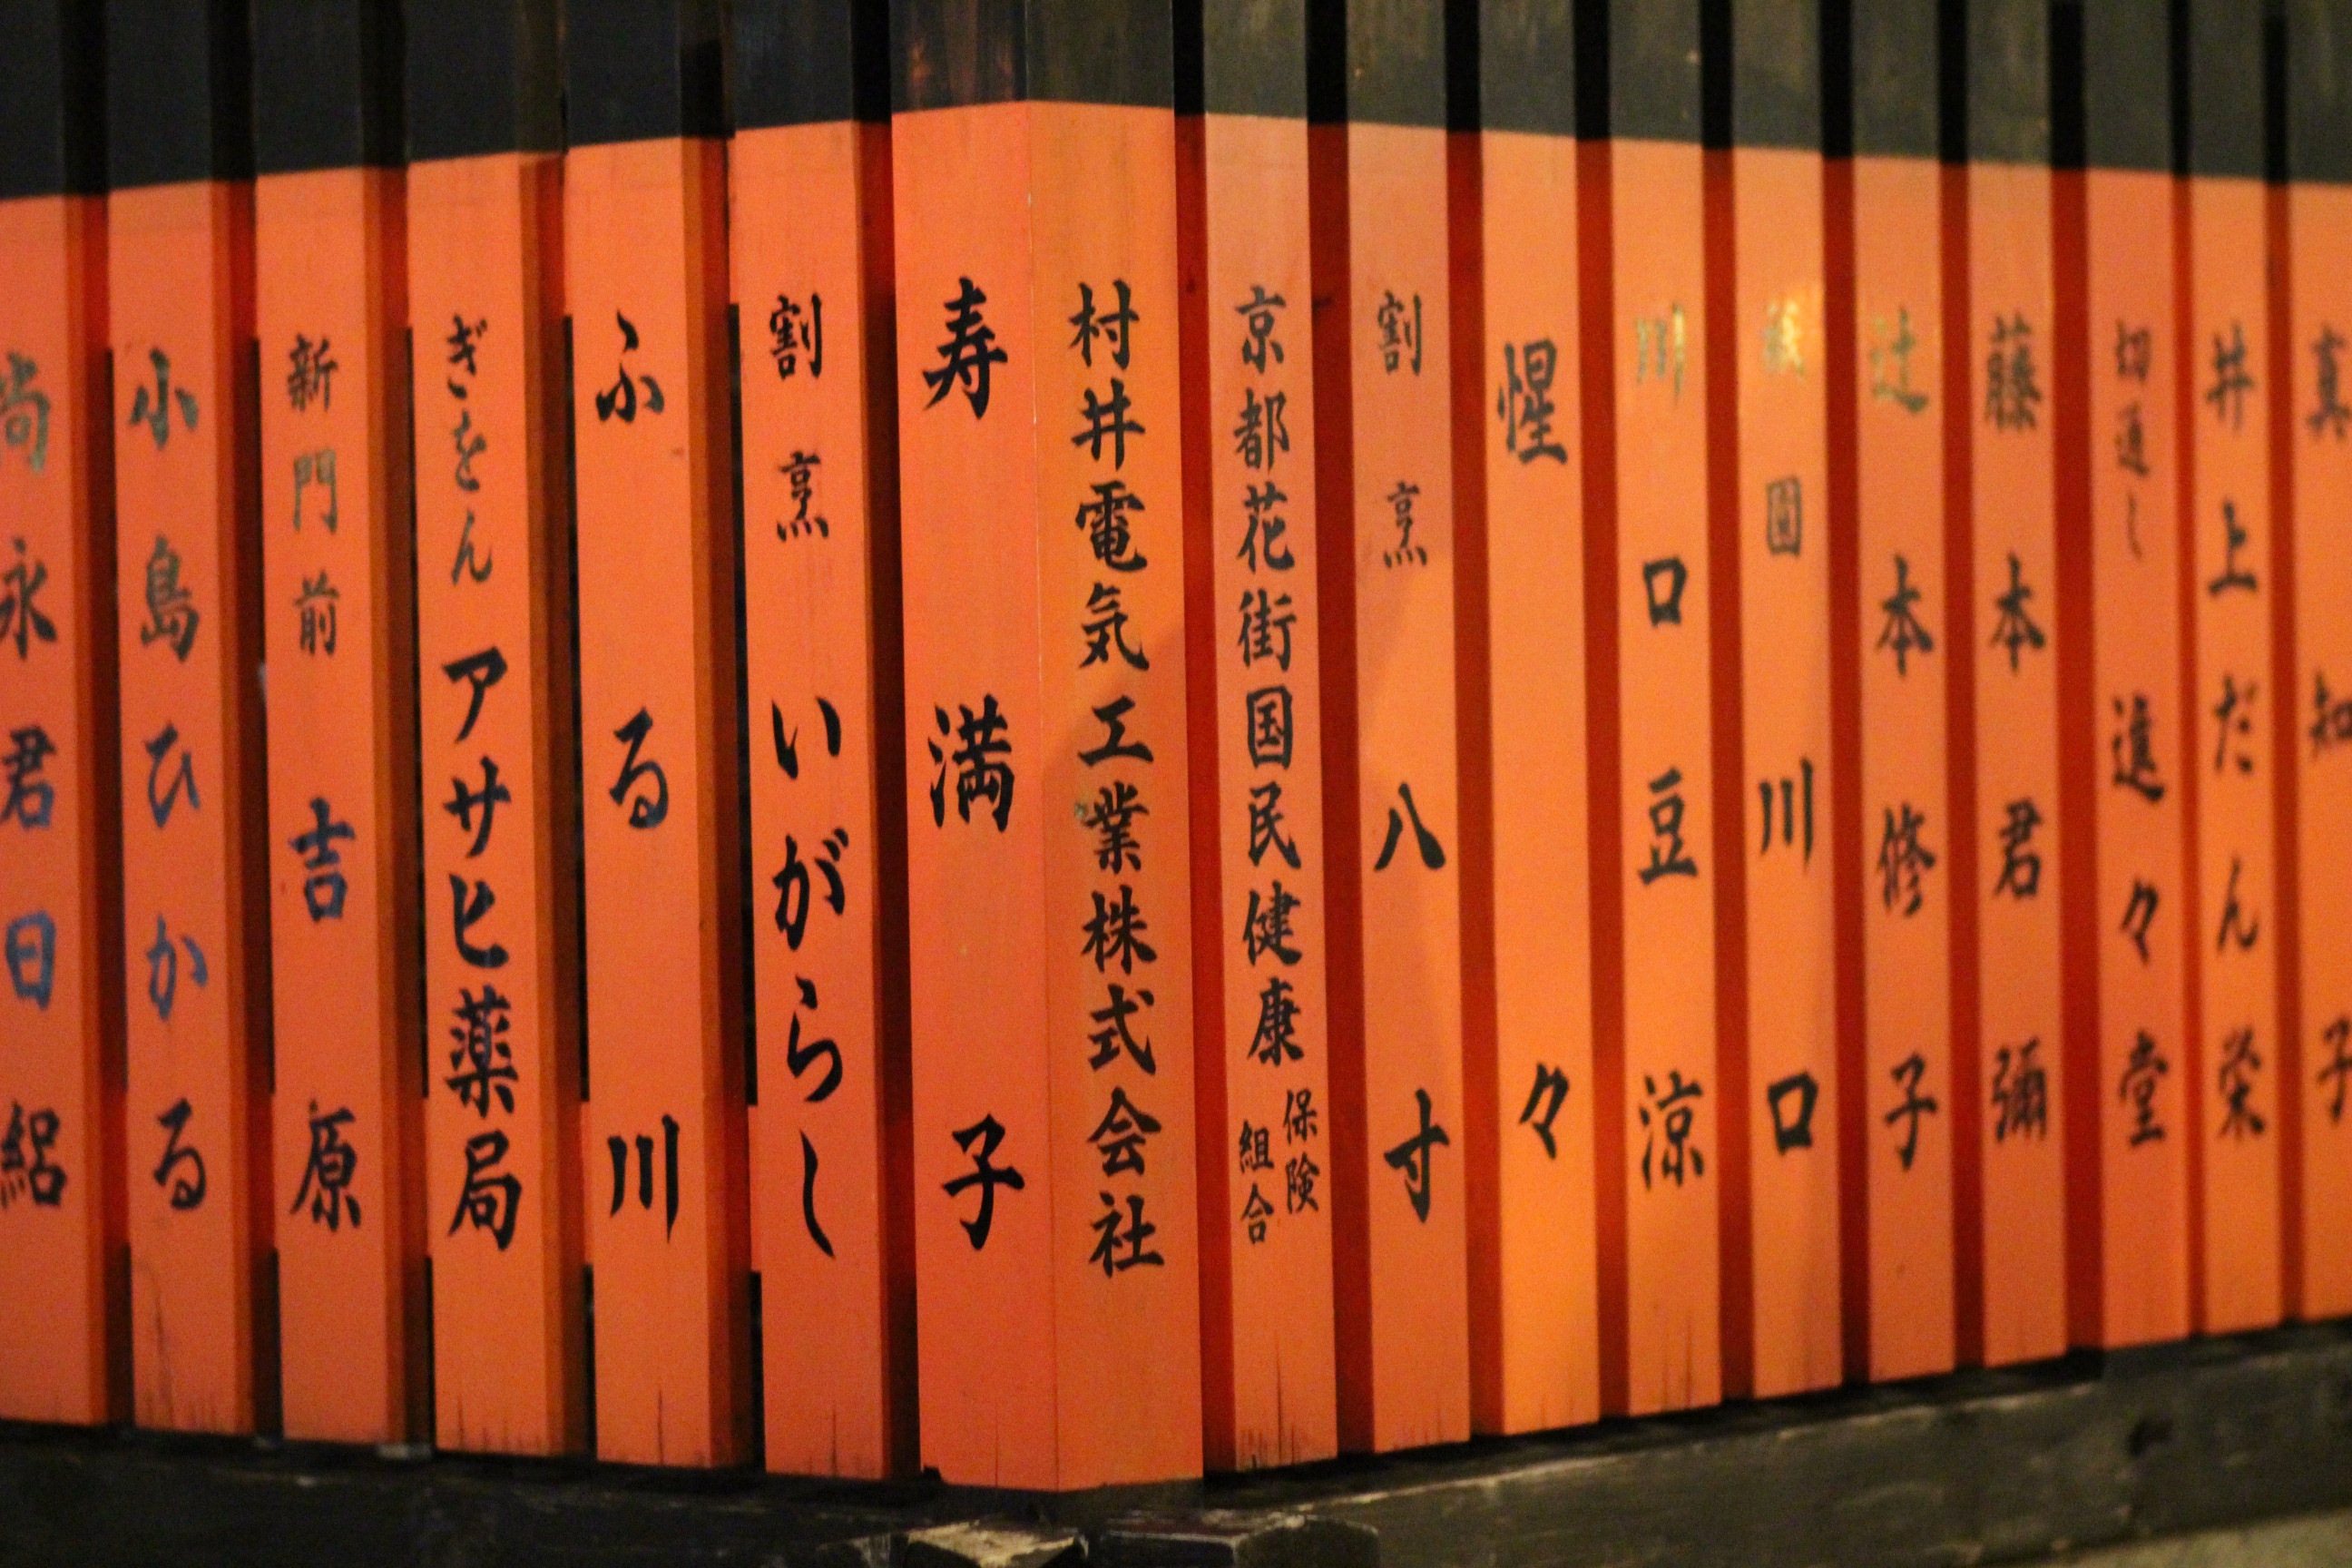 尚永君日
小島ひかる
新門前 吉原
ぎをん アサヒ薬局
ふる川
割烹 いがらし
寿満子
村井電気工業株式会社
京都花街国民健康保険組合
割烹 八寸
惺々
川口豆涼
祇園 川口
辻本修子
藤本君彌
切通し 進々堂
井上だん栄
真知子